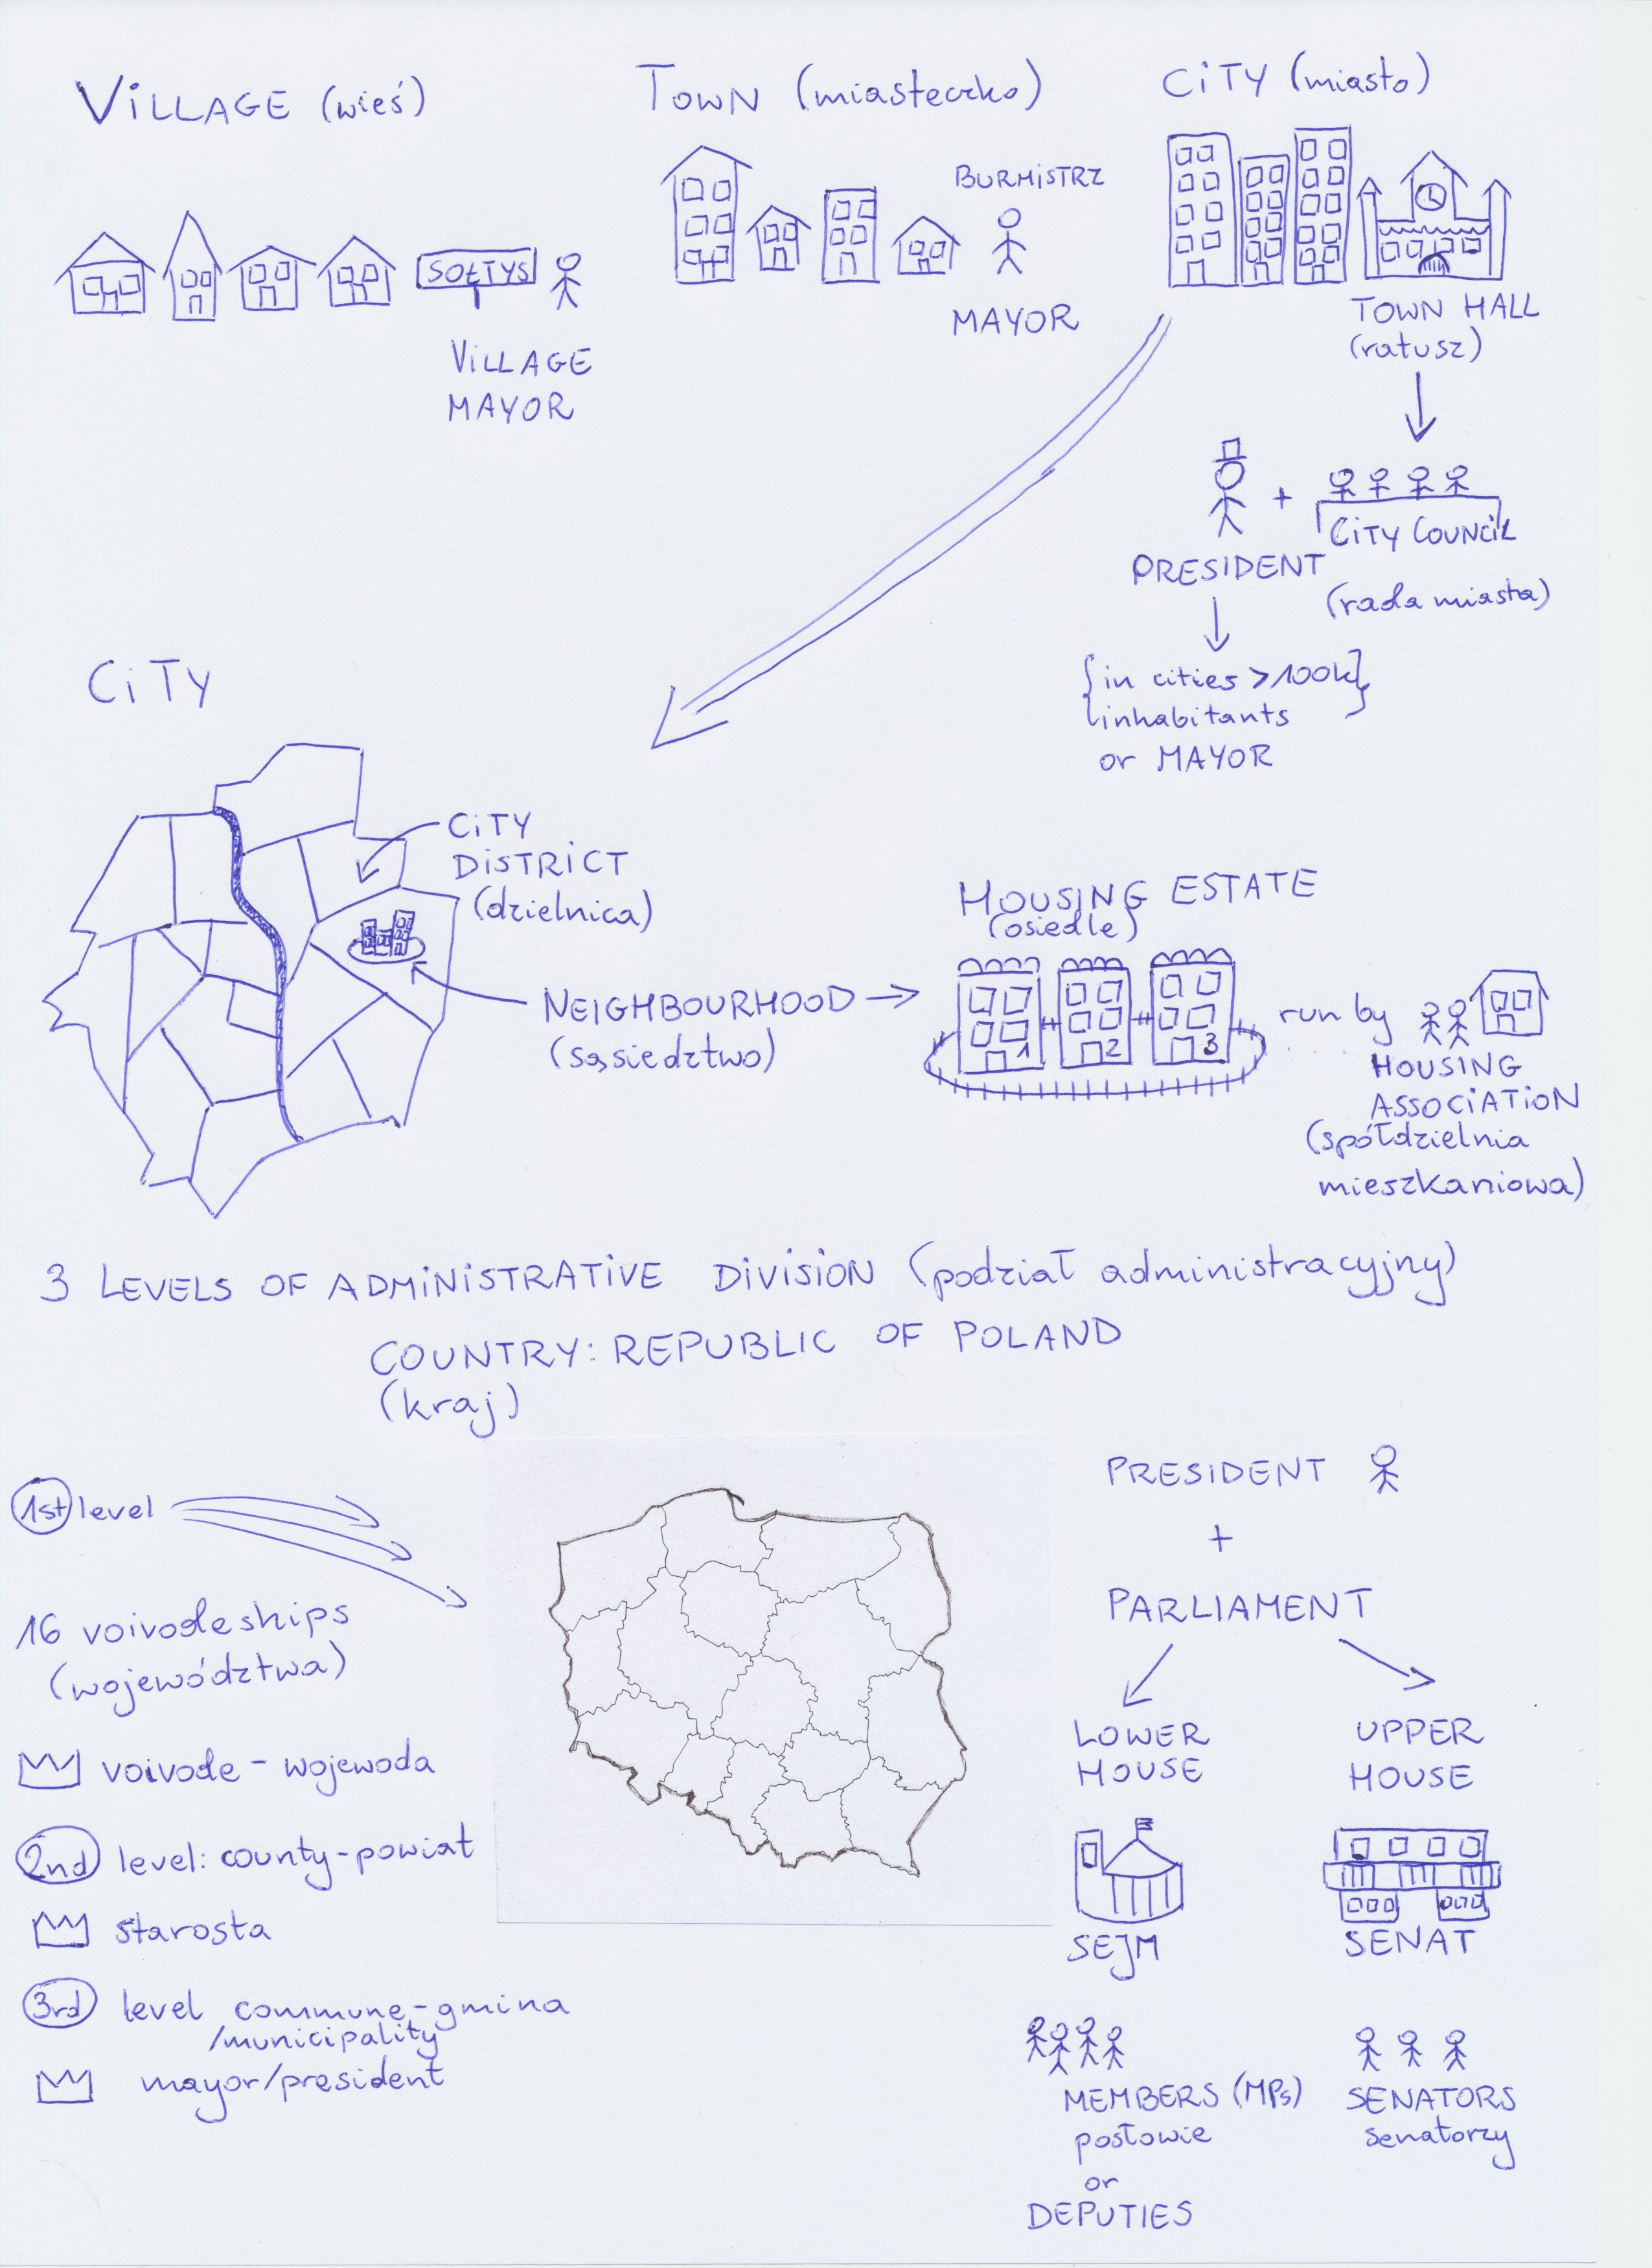 VILLAGE (wieś)
TOWN (miasteczko)
CITY (miasto)
BURMISTRZ
SOŁTYS
VILLAGE
MAYOR
MAYOR
TOWN HALL
(ratusz)
PRESIDENT
+
CITY COUNCIL
(rada miasta)
{in cities >100k}
inhabitants
or MAYOR
CITY
CITY
DISTRICT
(dzielnica)
NEIGHBOURHOOD
(sąsiedztwo)
HOUSING ESTATE
(osiedle)
1 2 3
run by
HOUSING
ASSOCIATION
(spółdzielnia
mieszkaniowa)
3 LEVELS OF ADMINISTRATIVE DIVISION (podział administracyjny)
COUNTRY: REPUBLIC OF POLAND
(kraj)
1st level
16 voivodeships
(województwa)
voivode - wojewoda
2nd level: county-powiat
starosta
3rd level commune-gmina
/municipality
mayor/president
PRESIDENT
+
PARLIAMENT
LOWER
HOUSE
UPPER
HOUSE
SEJM
SENAT
MEMBERS (MPs)
posłowie
or
DEPUTIES
SENATORS
senatorzy